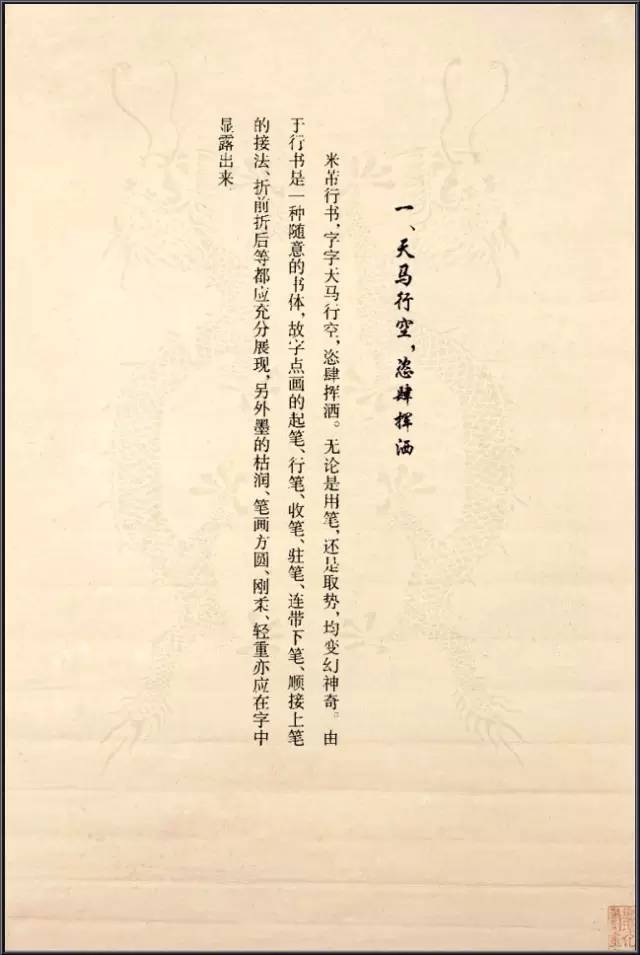 一、天马行空，恣肆挥洒
米芾行书，字字天马行空，恣肆挥洒。无论是用笔，还是取势，均变幻神奇。由
于行书是一种随意的书体，故字点画的起笔、行笔、收笔、驻笔、连带下笔、顺接上笔
的接法、折前折后等都应充分展现，另外墨的枯润、笔画方圆、刚柔、轻重亦应在字中
显露出来